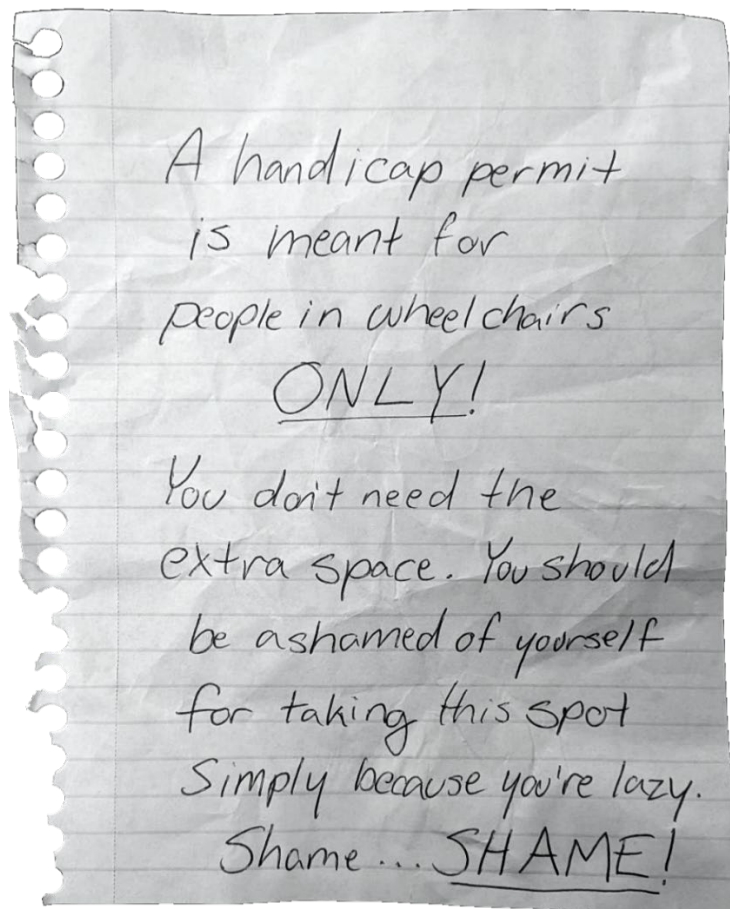 A handicap permit
is meant for
people in wheelchairs
ONLY!
You don't need the
extra space. You should
be ashamed of yourself
for taking this spot
Simply because you're lazy.
Shame... SHAME!